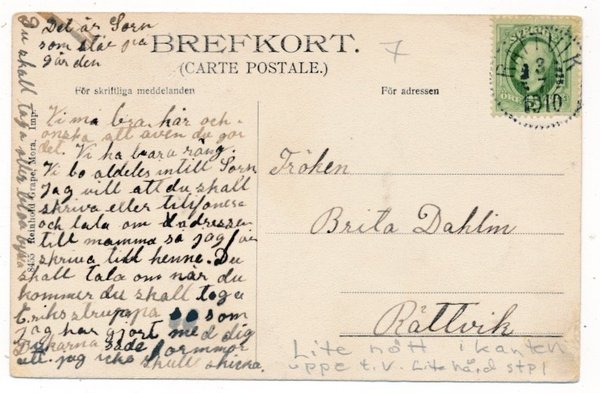 Det är Sorn
som står på
gården
BREFKORT.
(CARTE POSTALE.)
För skriftliga meddelanden
För adressen
7
Vi må bra här och
önska att även du gör
det. Vi ha bara räng.
Vi bo aldeles intill Sorn
Jag vill att du skall
skriva eller tilifonera
och tala om adressen
till mamma så jag får
skriva till henne. Du
skall tala om när du
kommer du skall toga
så som
jag har gjort med dig
sade formmor
att jag icke skulle skicka
Du skall taga eller
8455 Reinhold Grape, Mora. Imp.
3
1910
Fröken
Brita Dahlin
Rättvik
Lite nött i kanten
uppe t.v. Lite hård stpl